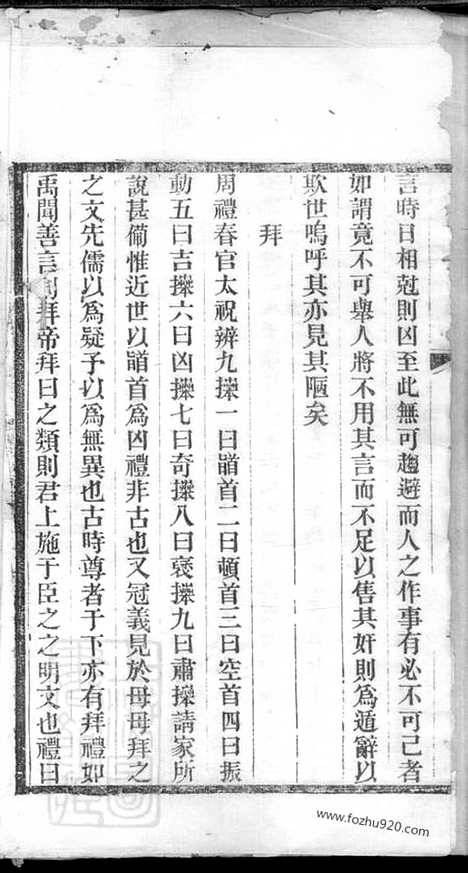 言時日相尅則凶至此無可趨避而人之作事有必不可已者
如謂竟不可舉人將不用其言而不足以售其奸則為遁辭以
欺世嗚呼其亦見其陋矣
拜
周禮春官太祝辨九𢷎一曰䭫首二曰頓首三曰空首四曰振
動五曰吉𢷎六曰凶𢷎七曰奇𢷎八曰襃𢷎九曰肅𢷎諸家所
說甚備惟近世以䭫首為凶禮非古也又冠義見於母母拜之
之文先儒以為疑予以為無異也古時尊者于下亦有拜禮如
禹聞善言則拜帝拜曰之類則君上施于臣之之明文也禮曰
www.fozhu920.com